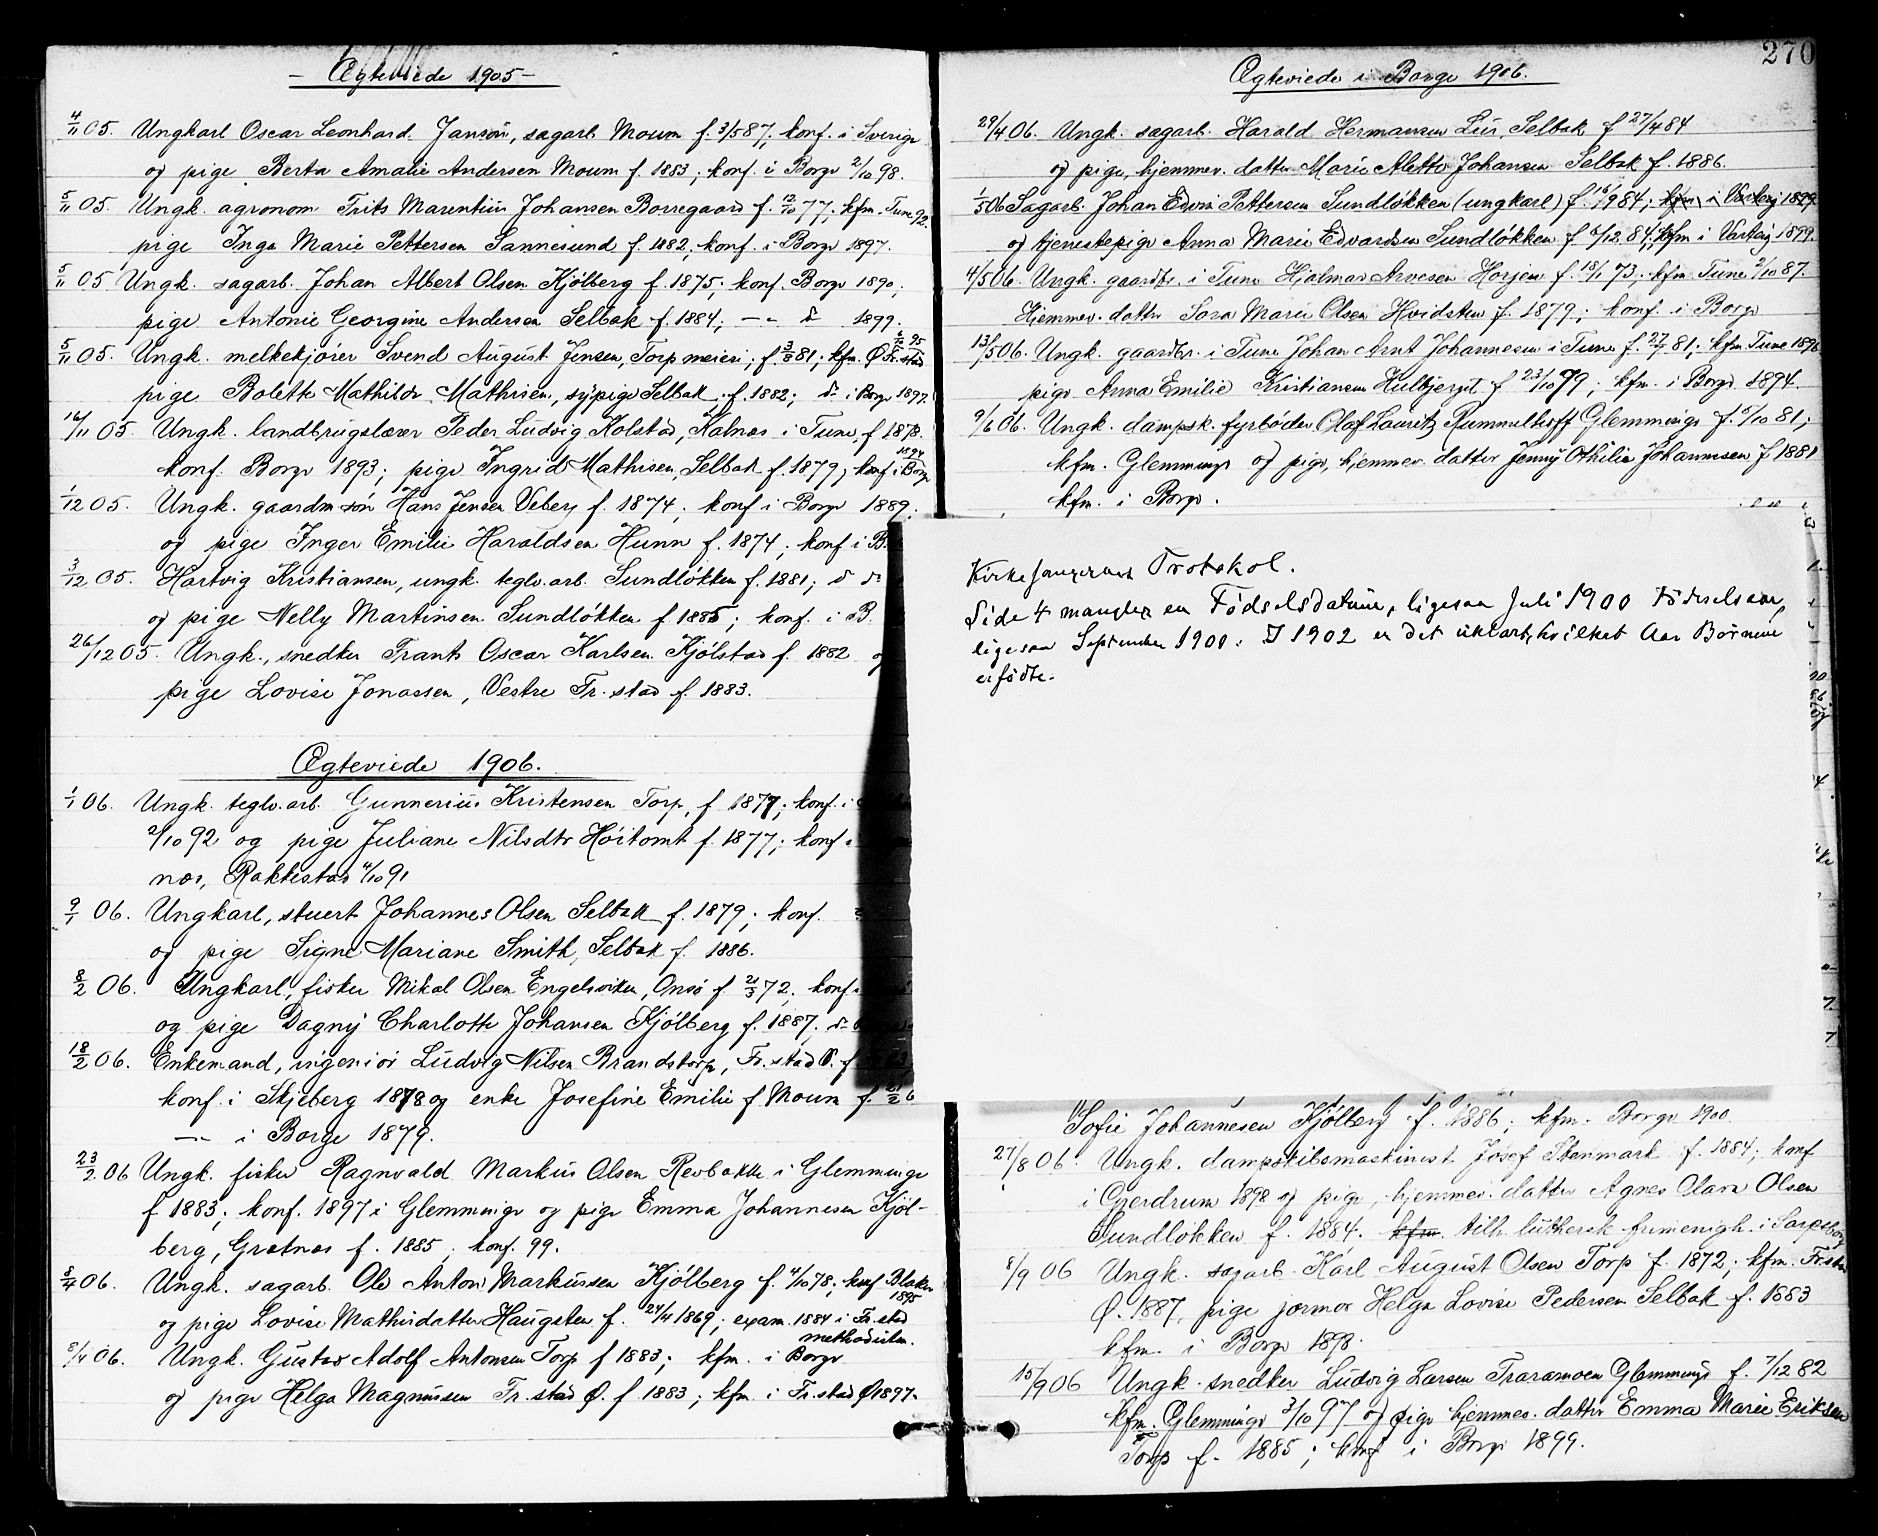 Ægteviede 1905
4/11 05. Ungkarl Oscar Leonhard Janson, sagarb. Moum f. 3/5 87, konf. i Sverige
og pige Berta Amalie Andersen Moum f. 1883; konf. i Borge 2/10 98.
5/11 05. Ungk. agronom Frits Marentius Johansen Borregaard f. 12/10 77; kfm. Tune 92.
pige Inga Marie Pettersen Sannesund f. 1882; konf. i Borge 1897.
5/11 05 Ungk. sagarb. Johan Albert Olsen Kjölberg f. 1875; konf. Borge 1890;
pige Antonie Georgine Andersen Selbak f. 1884, 1899.
5/11 05. Ungk. melkekjörer Svend August Jensen, Torp meieri; f. 3/8 81; kfm. Ø Fr.stad 95
pige Bolette Mathilde Mathisen, sypige Selbak, f. 1882; i Borge 1897.
16/11 05. Ungk. landbrugslærer Peder Ludvig Kolstad, Kalnes i Tune, f 1878.
konf. Borge 1893; pige Ingrid Mathisen, Selbak f. 1879; konf i Borge 1894
1/12 05. Ungk. gaardm. sön Hans Jensen Veberg f. 1874; konf i Borge 1889.
og pige Inger Emilie Haraldsen Hunn f. 1874; konf i B
3/12 05. Hartvig Kristiansen, ungk. teglv. arb. Sundlökken f. 1881;
og pige Nelly Martinsen Sundlökken f 1885; konf. i B.
26/12 05. Ungk., snedker Frants Oscar Karlsen Kjölstad f. 1882 o
pige Lovise Jonassen, Vestre Fr. stad f. 1883.
Ægteviede 1906.
1/1 06. Ungk. teglv. arb. Gunnerius Kristensen Torp, f 1877; konf. i
2/10 92 og pige Juliane Nilsdtr Höitomt f. 1877; konf.
nes, Rakkestad 4/10 91
9/1 06. Ungkarl, stuert Johannes Olsen Selbak f. 1879; konf.
og pige Signe Mariane Smith, Selbak f. 1886.
8/2 06. Ungkarl, fisker Mikal Olsen Engelsviken, Onsö f 21/3 72; konf.
og pige Dagny Charlotte Johansen Kjölberg f. 1887.
18/2 06. Enkemand, ingeniör Ludvig Nilsen Brandstorp, Fr. stad Ø. f
konf. i Skjeberg 1878 og enke Josefine Emilie f Moum f. 21/2 6
i Borge 1879.
23/2 06 Ungk. fisker Ragnvald Markus Olsen Revbakke i Glemminge
f 1883; konf. 1897 i Glemminge og pige Emma Johannesen Kjöl-
berg, Gretnes f. 1885; konf. 99.
8/4 06. Ungk. sagarb. Ole Anton Markussen Kjölberg f. 4/10 78; konf Blaker 1895
og pige Lovise Mathisdatter Haugsten f. 24/4 1869; exam. 1884 i Fr. stad
methodistm.
8/4 06. Ungk. Gustav Adolf Antonsen Torp f 1883; kfm. i Borge
og pige Helga Magnussen Fr. stad Ø. f 1883; kfm. i Fr. stad Ø 1897.
270
Ægteviede i Borge 1906.
29/4 06. Ungk. sagarb. Harald Hermansen Lie, Selbak f 27/4 84
og pige, hjemmev. datter Marie Aletta Johansen Selbak f. 1886.
1/5 06 Sagarb. Johan Edvin Pettersen Sundløkken (ungkarl) f. 16/9 84; kfm. i Varteig 1899
og tjenestepige Anna Marie Edvardsen Sundløkken f 6/12 84; kfm i Varteig 1899.
4/5 06. Ungk. gaardbr. i Tune Hjalmar Arvesen Horjen f. 18/1 73; kfm. Tune 2/10 87.
Hjemmev. datter Sara Marie Olsen Hvidsten f. 1879; konf. i Borge
13/5 06. Ungk. gaardbr. i Tune Johan Arnt Johannesen i Tune f. 27/7 81; kfm. Tune 1896
pige Anna Emilie Kristiansen f 23/10 79; kfm. i Borge 1894.
9/6 06. Ungk. dampsk. fyrböder Olaf Lauritz Rummelhoff Glemminge f. 5/10 81;
kfm. Glemminge og pige, hjemmev. datter Jenny Othilie Johannesen f 1881
kfm. i Borge.
Kirkesangerens Protokol.
Side 4 mangler en Födselsdatum, ligesaa Juli 1900 Födselsaar,
ligesaa September 1900. I 1902 er det uklart, hvilket Aar Börnene
er födte.
Sofie Johannesen Kjölberg f. 1886; kfm. Borge 1900
27/8 06. Ungk. dampskibsmaskinist Josef Stenmark f. 1884; konf
i Gjerdrum 1898 og pige, hjemmev. datter Agnes Clara Olsen
Sundlökken f. 1884. kfm. tilh. luthersk frimenigh. i Sarpsborg
8/9 06 Ungk. sagarb. Karl August Olsen Torp f. 1872; kfm. Fr. stad
Ø. 1887, pige jormor Helga Lovise Pedersen Selbak f. 1883
kfm. i Borge 1898.
15/9 06 Ungk. snedker Ludvig Larsen Traramoen Glemminge f. 7/12 82
kfm. Glemminge 3/10 97 og pige hjemmev. datter Emma Marie Eriksen
Torp f. 1885; konf i Borge 1899.